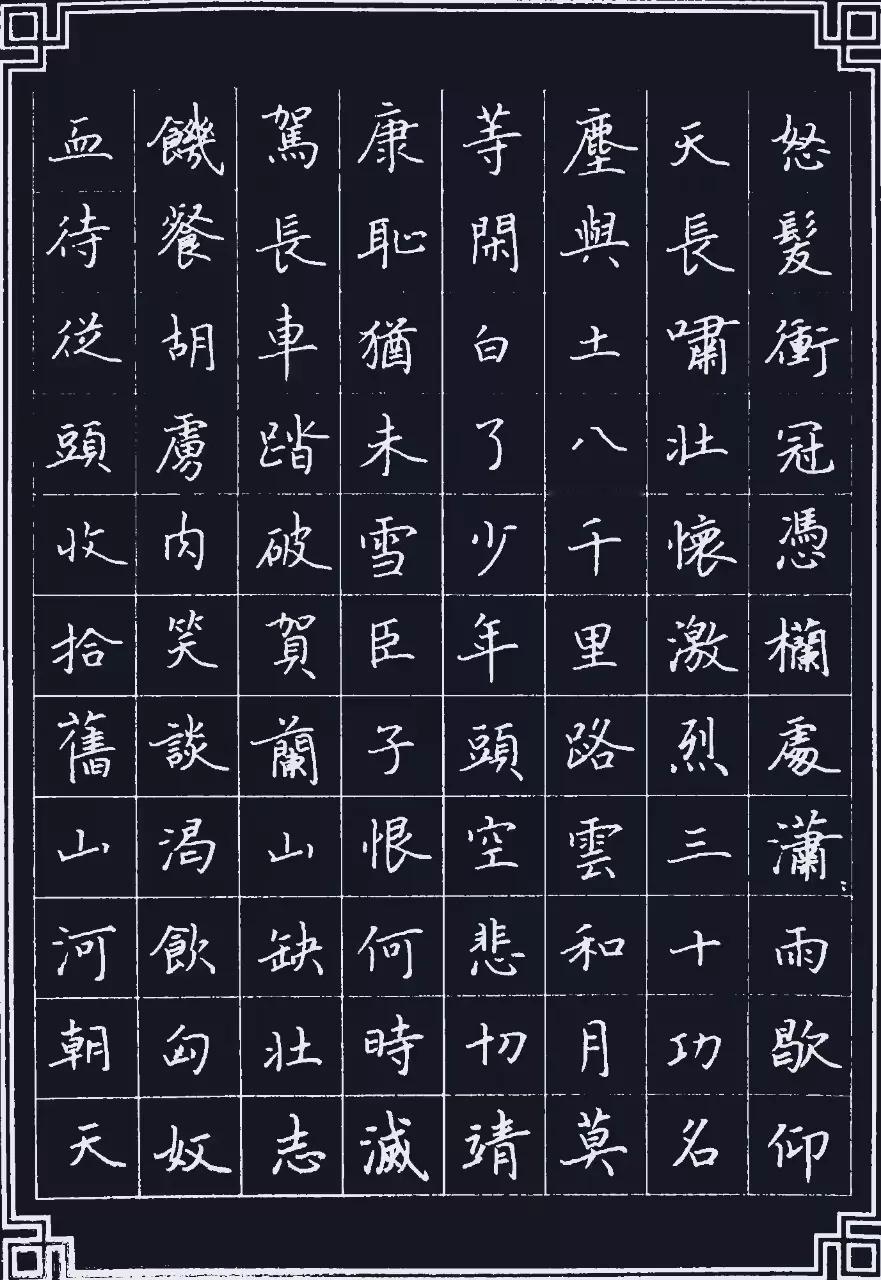 怒髮衝冠憑欄處瀟〻雨歇仰
天長嘯壯懷激烈三十功名
塵與土八千里路雲和月莫
等閑白了少年頭空悲切靖
康恥猶未雪臣子恨何時滅
駕長車踏破賀蘭山缺壯志
饑餐胡虜肉笑談渴飲匈奴
血待從頭收拾舊山河朝天